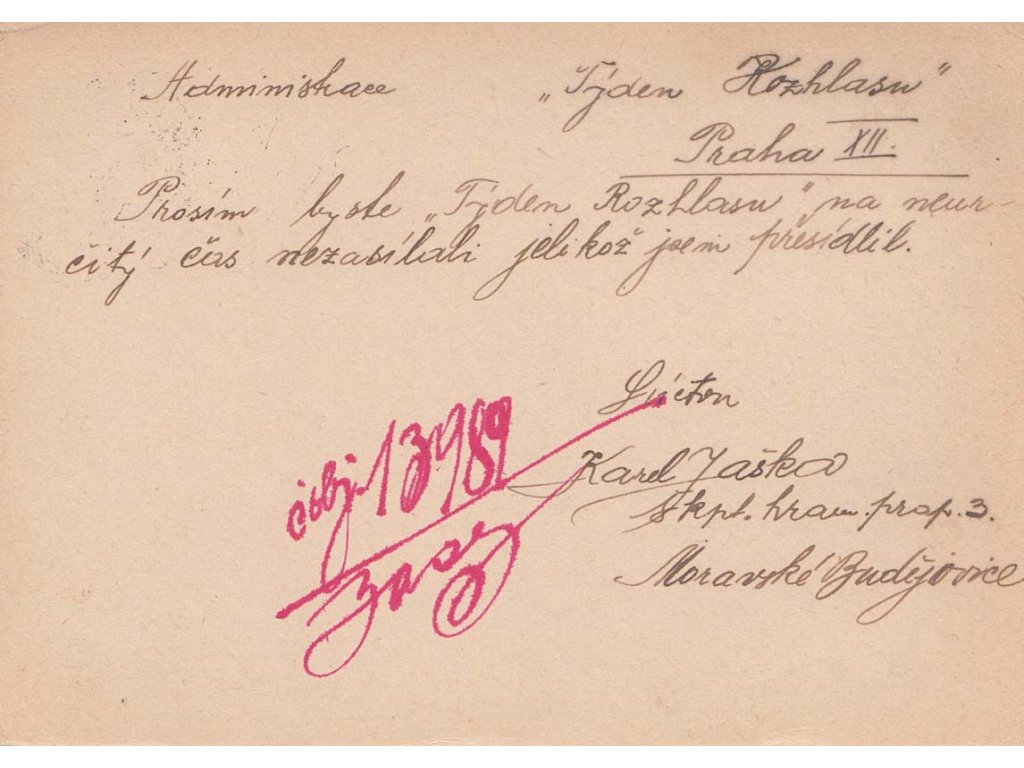 Administrace „Týden Rozhlasu"
Praha XII.
Prosím byste „Týden Rozhlasu" na neur-
čitý čas nezasílali jelikož jsem přesídlil.
Karel Jaška
skpt. hran. prap. 3.
Moravské Budějovice